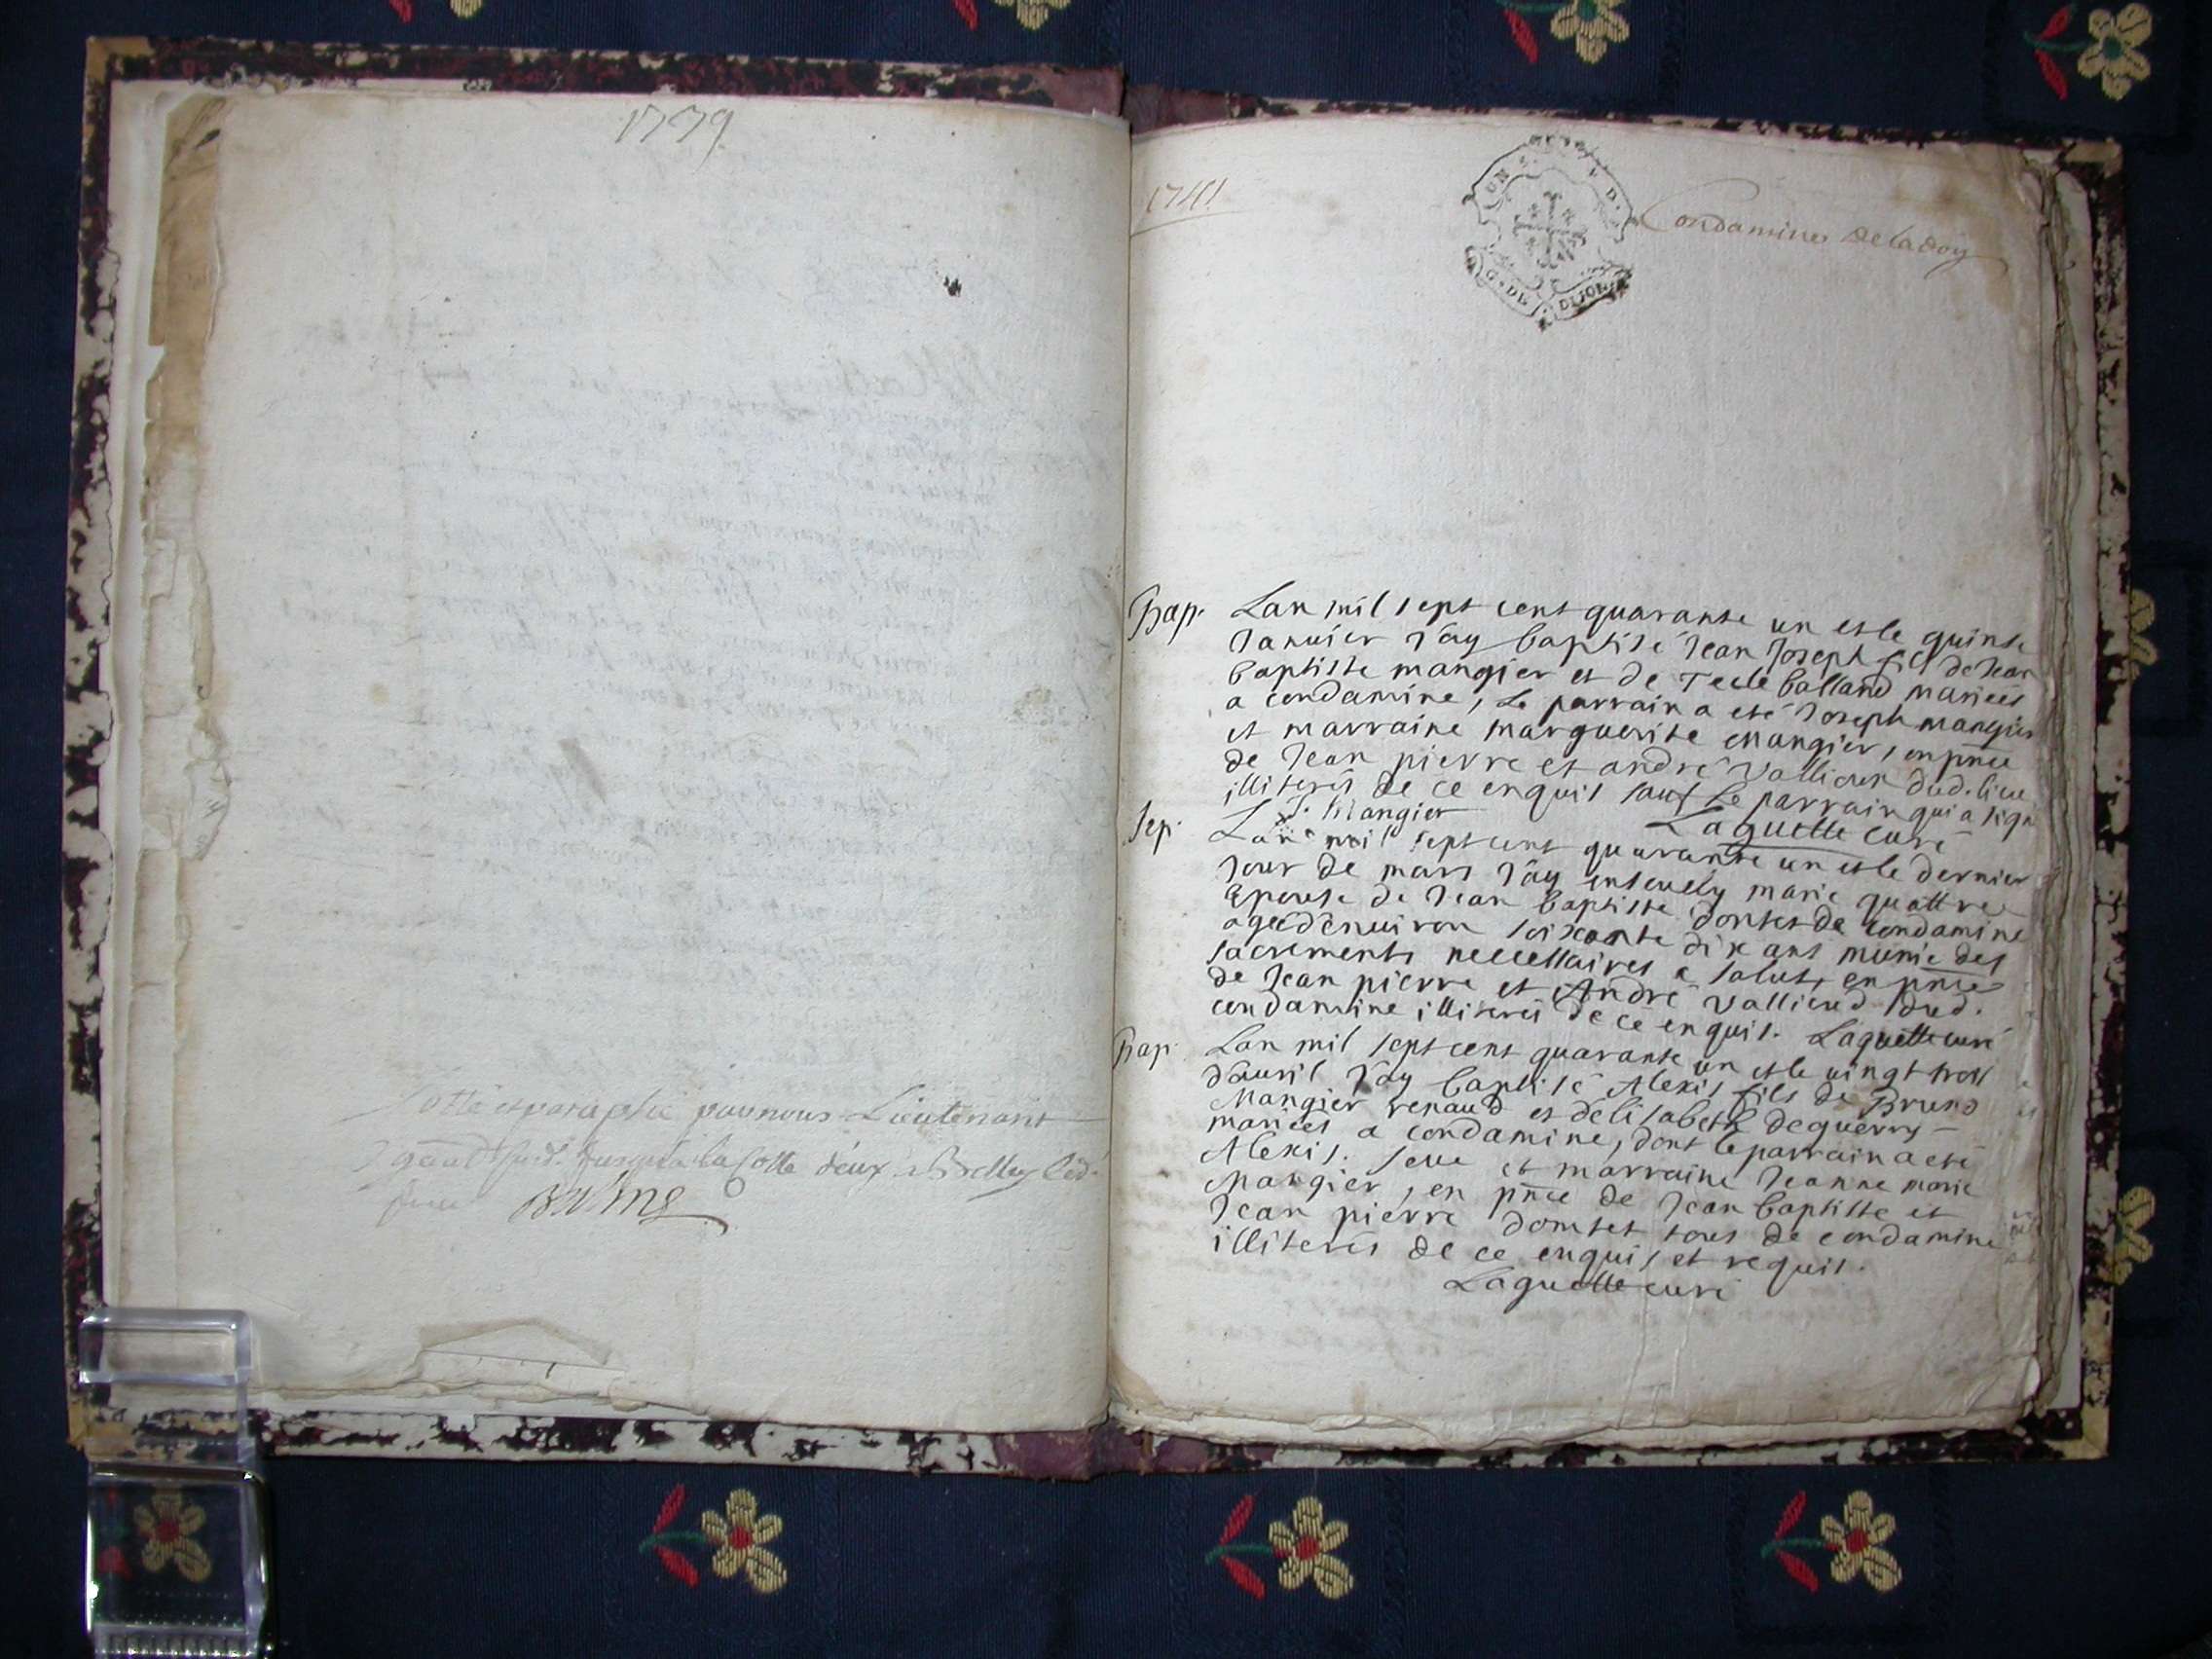 1779
Cotté et paraphé par nous Lieutenant
jusqu'à la Cotte deux a Belley led.
1741
GN
D.
G. DE DIJON
Condamine de la doy
Bap. Lan mil sept cent quarante un et le quinse
Januier j'ay baptisé Jean Joseph fils de Jean
baptiste mangier et de Tecle balland mariéés
a condamine, Le parrain a eté Joseph mangier
et marraine marguerite Mangier, en pñce
de Jean pierre et andré Vallioud dud. lieu
illiterés de ce enquis sauf le parrain qui a signé
J. Mangier Laguette curé
Sep. Lan mil sept cent quarante un et le dernier
Jour de mars j'ay enseuely marie quattre
Epouse de Jean baptiste domtet de condamine
agée d'enuiron soixante dix ans munie des
sacrements necessaires a salut, en pñce
de Jean pierre et André Vallioud dud.
condamine illiterés de ce enquis. Laguette curé
Bap. Lan mil sept cent quarante un et le uingt trois
d'auril j'ay baptisé Alexis fils de Bruno
Mangier renaud et delisabeth deguerry
mariéés a condamine, dont le parrain a eté
Alexis. seue et marraine Jeanne marie
Mangier, en pñce de Jean baptiste et
Jean pierre domtet tous de condamine
illiterés de ce enquis et requis.
Laguette curé